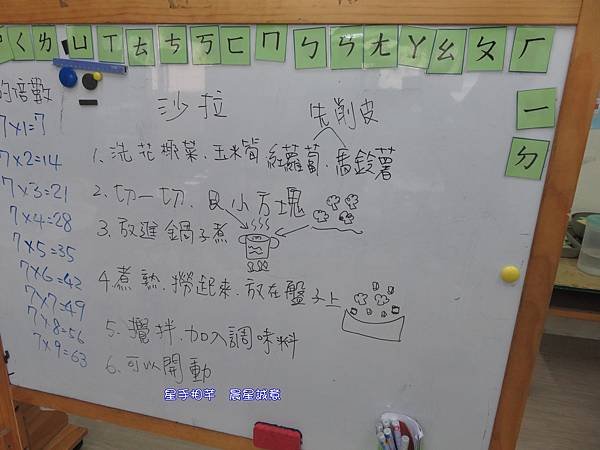 ㄑㄌㄩㄒㄊㄘㄎㄈㄇㄅㄋㄤㄚㄠㄆㄏ
ㄧ
ㄉ
的倍數
7x1=7
7x2=14
7x3=21
7x4=28
7x5=35
7x6=42
7x7=49
7x8=56
7x9=63
沙拉
先削皮
1. 洗花椰菜、玉米筍、紅蘿蔔、馬鈴薯
2. 切一切、小方塊
3. 放進鍋子煮
4. 煮熟、撈起來、放在盤子上
5. 攪拌、加入調味料
6. 可以開動
星手相芊 晨星誠意